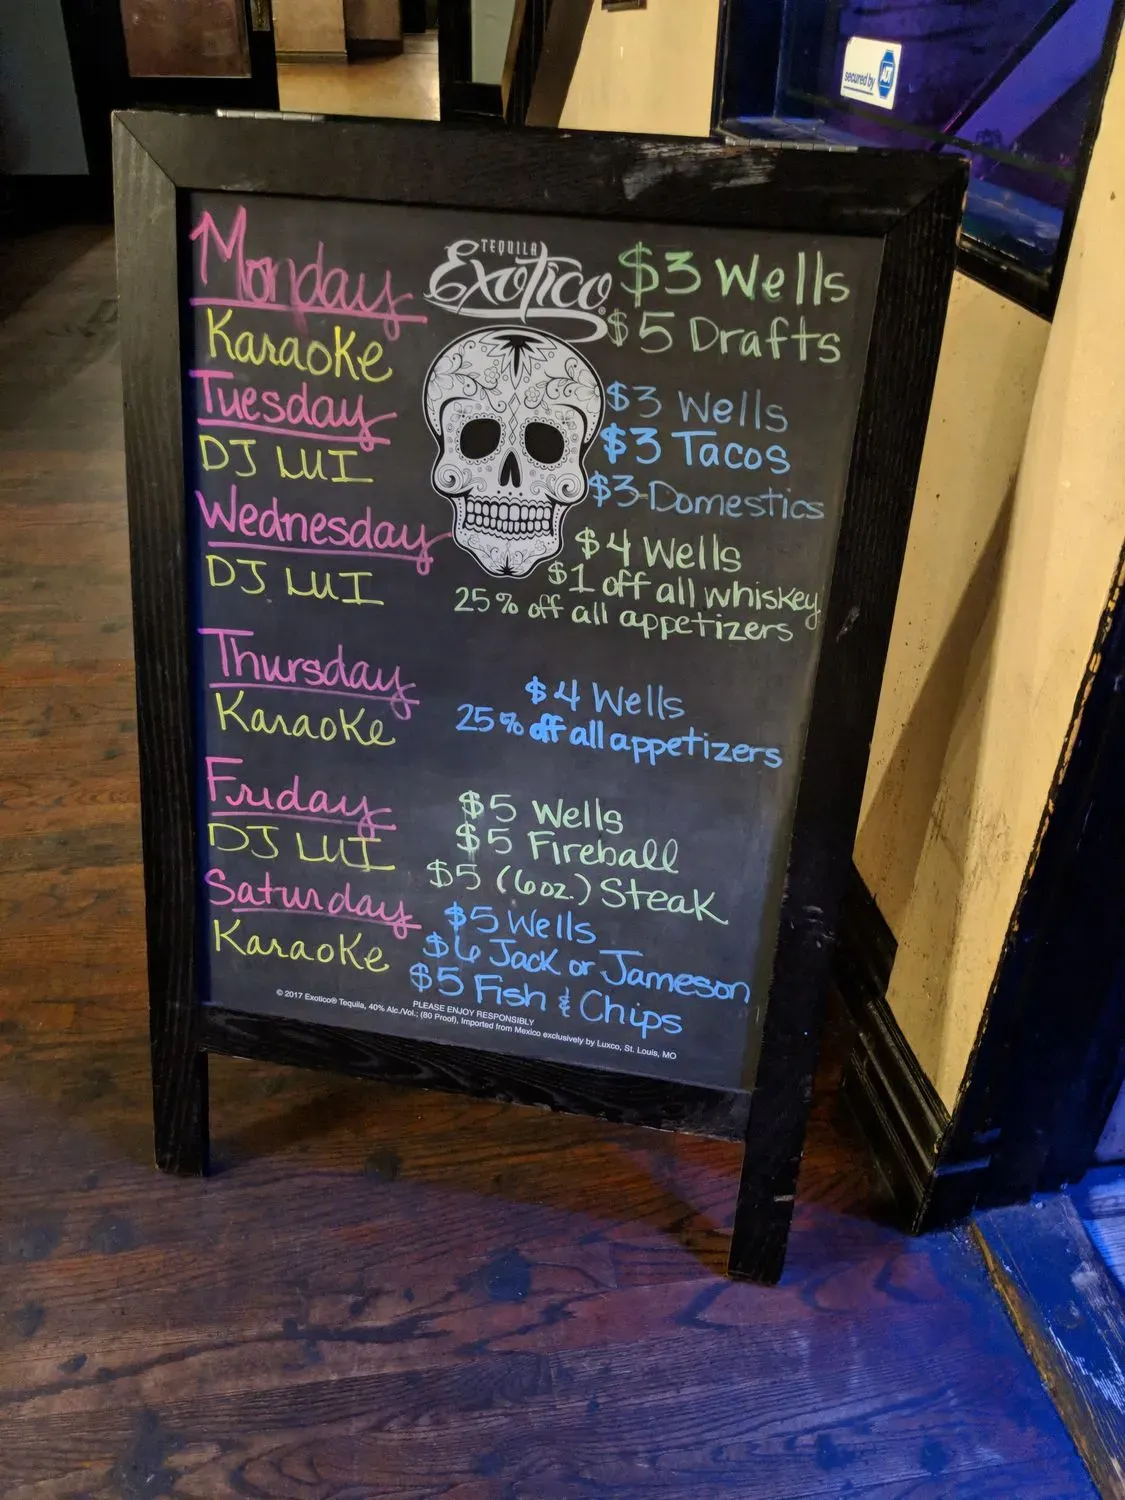 secured by ADT
TEQUILA
Exotico®
Monday
Karaoke
$3 Wells
$5 Drafts
Tuesday
DJ LUI
$3 Wells
$3 Tacos
$3 Domestics
Wednesday
DJ LUI
$4 Wells
$1 off all whiskey
25% off all appetizers
Thursday
Karaoke
$4 Wells
25% off all appetizers
Friday
DJ LUI
$5 Wells
$5 Fireball
$5 (6oz.) Steak
Saturday
Karaoke
$5 Wells
$6 Jack or Jameson
$5 Fish & Chips
PLEASE ENJOY RESPONSIBLY
© 2017 Exotico® Tequila, 40% Alc./Vol.; (80 Proof), Imported from Mexico exclusively by Luxco, St. Louis, MO